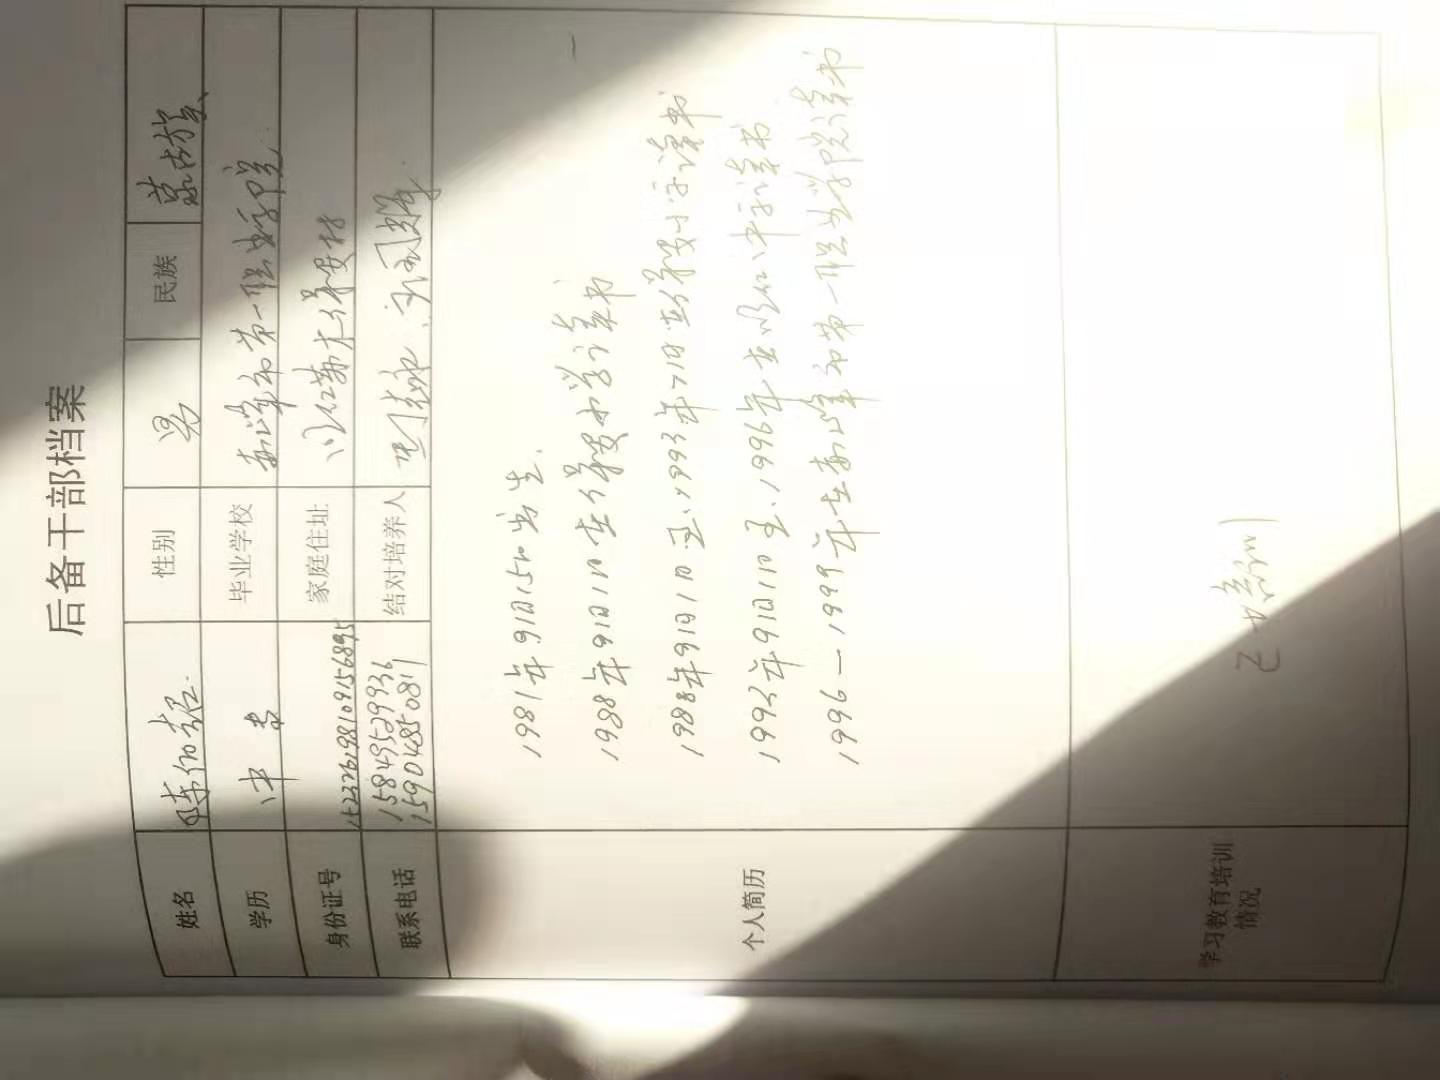 后备干部档案
姓名 性别 男 民族 蒙古族
学历 中专 毕业学校 赤峰市第一职业学院
身份证号 152326198109156895 家庭住址 保安村
联系电话 15849529936 结对培养人
1590485081
个人简历
1981年9月15日出生.
1988年9月1日在保安小学读书
1988年9月1日至1993年7月在保安小学读书
1993年9月1日至1996年在 中学读书
1996—1999年在赤峰市第一职业学院读书
学习教育培训
情况
已培训